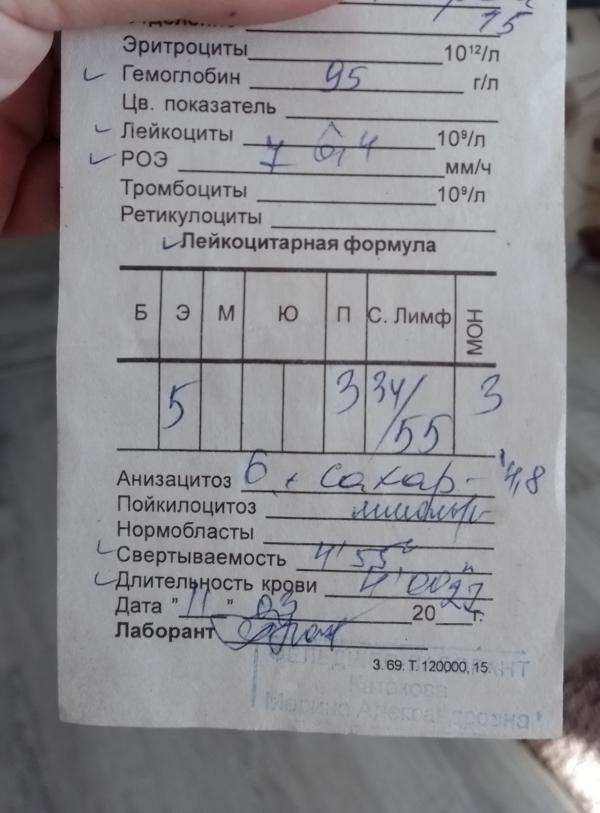 15
Отделение
Эритроциты 10¹²/л
Гемоглобин 95 г/л
Цв. показатель
Лейкоциты 6,4 10⁹/л
РОЭ 7 мм/ч
Тромбоциты 10⁹/л
Ретикулоциты
Лейкоцитарная формула
Б Э М Ю П С. Лимф МОН
5 3 34/55 3
Анизацитоз сахар - 4,8
Пойкилоцитоз ммоль/л
Нормобласты
Свертываемость 4' 55"
Длительность крови 4' 00"
Дата " 11 " 03 20 27 г.
Лаборант
З. 69. Т. 120000, 15.
ФЕЛЬДШЕР-ЛАБОРАНТ
Марина Александровна